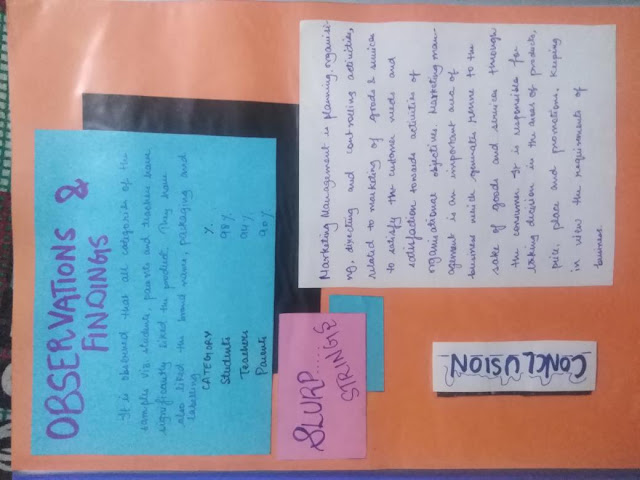 OBSERVATIONS &
FINDINGS
It is observed that all categories of the
sample viz students, parents and teachers have
significantly liked the product. They have
also liked the brand name, packaging and
labelling
CATEGORY %
Students 98%
Teachers 94%
Parents 90%
SLURP
STRINGIE
Marketing Management is planning, organisi-
ng, directing and controlling activities,
related to marketing of goods & services
to satisfy the customer needs and
satisfaction towards activities of
organisational objectives. Marketing man-
agement is an important area of
business which generates revenue to the
sale of goods and services through
the consumer. It is responsible for
taking decision in the areas of products,
price, place and promotions. Keeping
in view the requirements of
business.
CONCLUSION